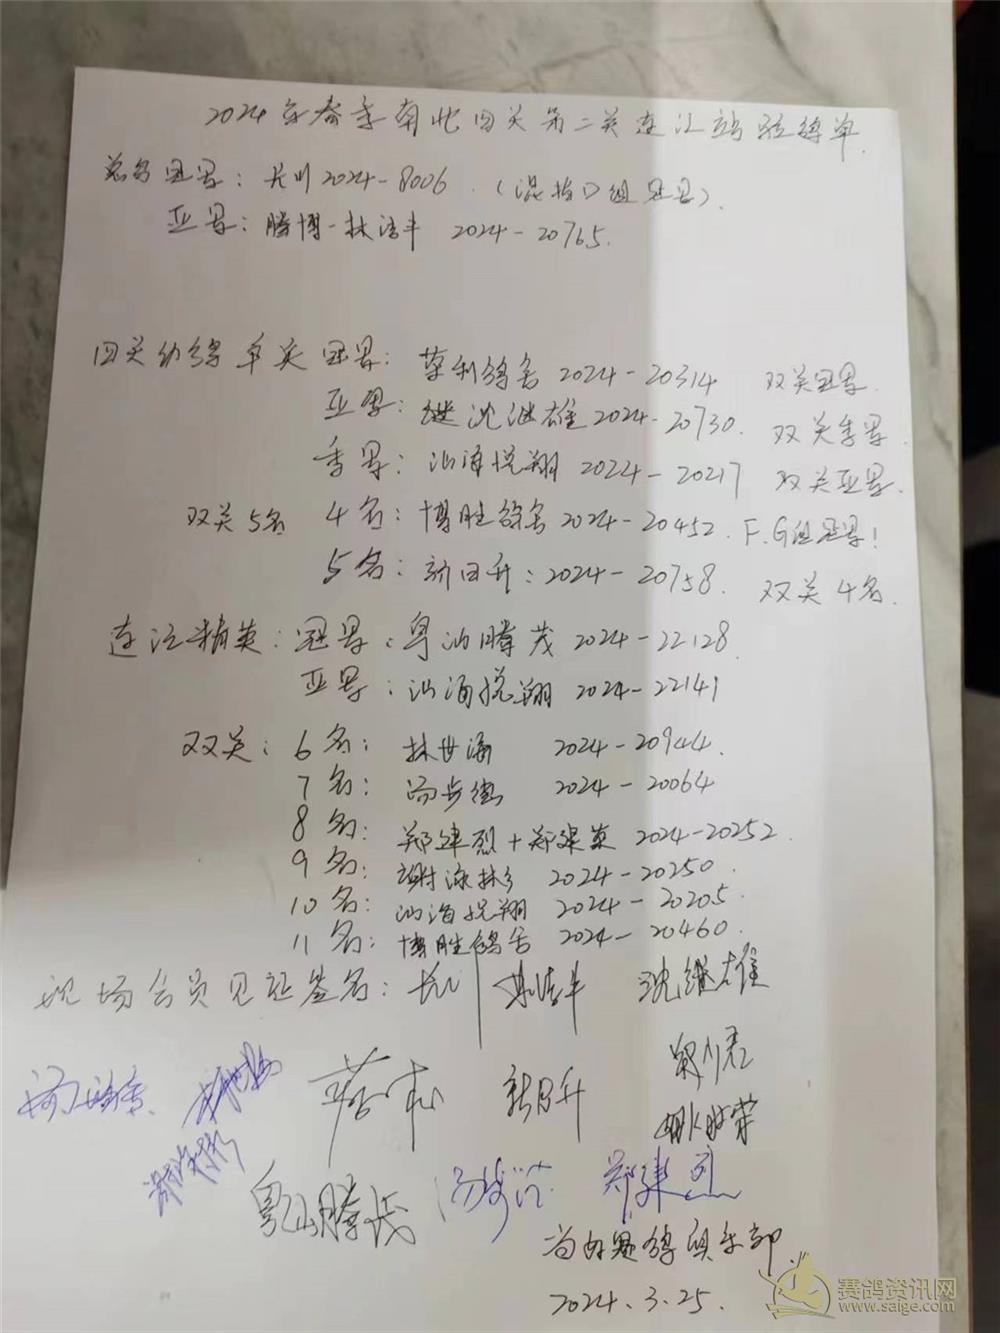 2024年春季南北四关第二关连江站验鸽单.
总名冠军: 长川2024-8006. (混指口组冠军).
亚军: 腾博-林浩丰 2024-20765.
四关幼鸽单关 冠军: 荣利鸽舍 2024-20314 双关冠军.
亚军: 继沈继雄 2024-20730. 双关季军.
季军: 汕海悦翔 2024-20217 双关亚军.
双关5名 4名: 博胜鸽舍 2024-20452. F.G组冠军!
5名: 新日升: 2024-20758. 双关4名.
连江精英: 冠军: 粤汕腾茂 2024-22128.
亚军: 汕海悦翔 2024-22141
双关: 6名: 林世海 2024-20944.
7名: 汤步 2024-20064
8名: 郑建烈+郑建英 2024-20252.
9名: 谢泳彬 2024-20250.
10名: 汕海悦翔 2024-20205.
11名: 博胜鸽舍 2024-20460.
现场会员见证签名: 长川 林浩丰 沈继雄
新日升
粤汕腾茂 郑建烈
赛鸽俱乐部.
2024.3.25.
赛鸽资讯网
www.saige.com